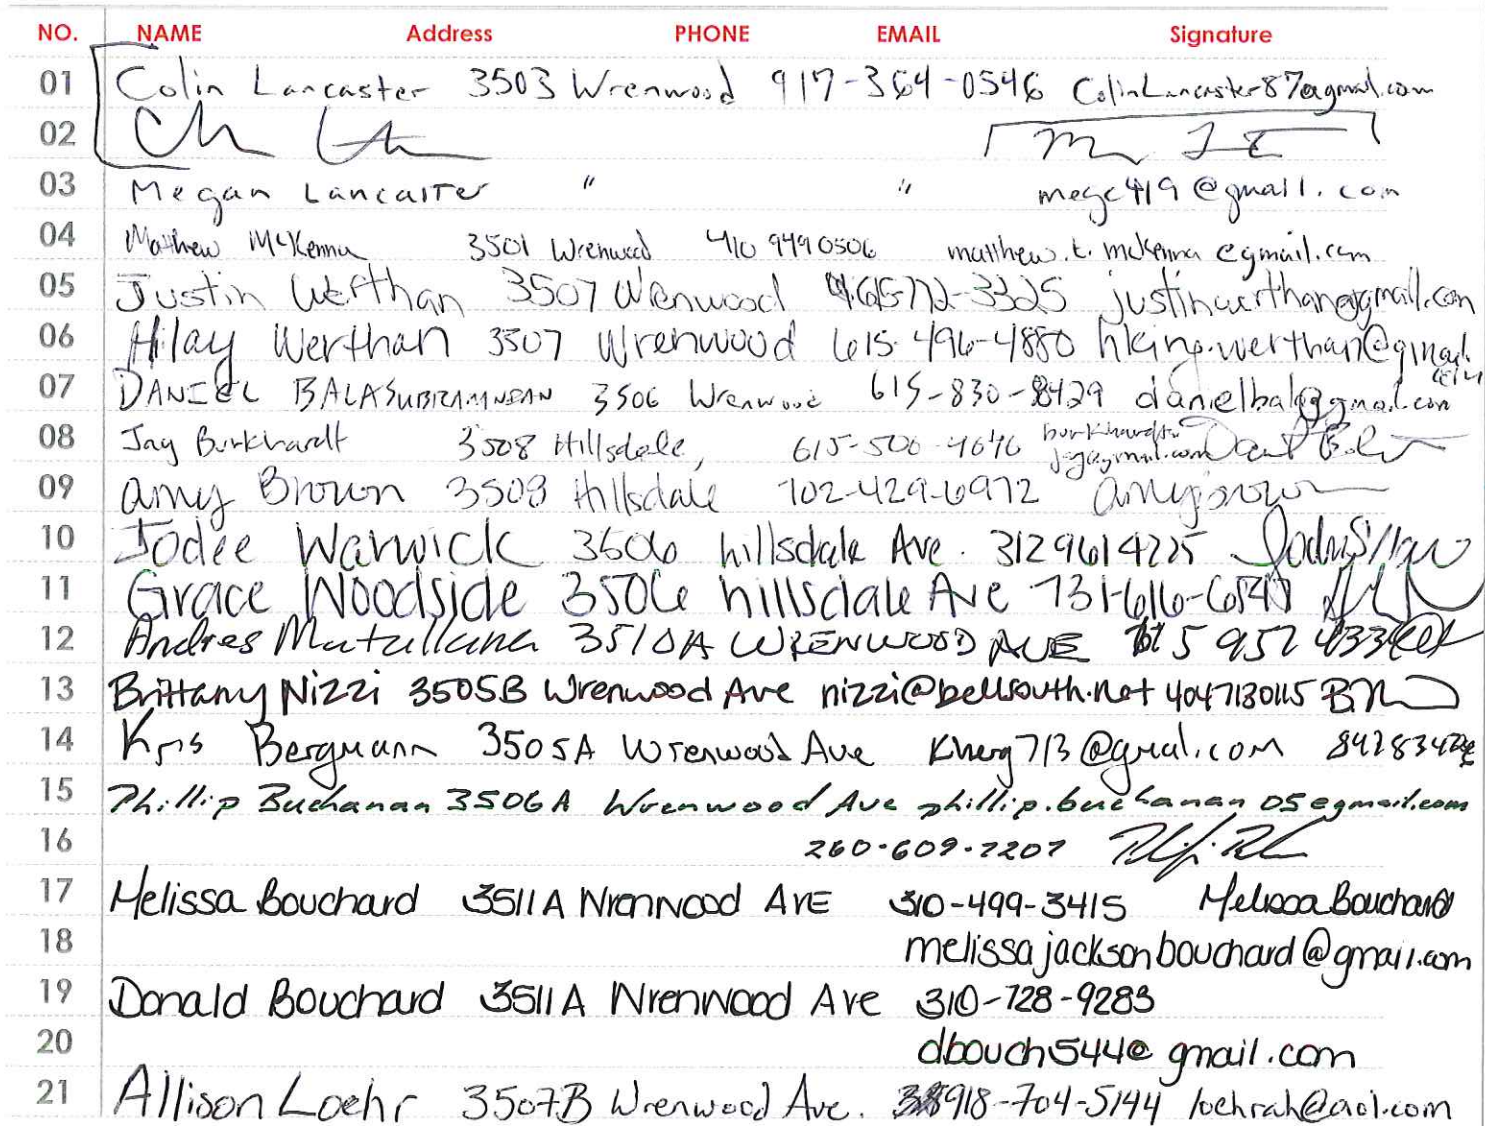 NO. NAME Address PHONE EMAIL Signature
01 Colin Lancaster 3503 Wrenwood 917-364-0546 ColinLancaster87@gmail.com
02
03 Megan Lancaster " " megc419@gmail.com
04 Matthew McKenna 3501 Wrenwood 410 949 0506 matthew.t.mckenna@gmail.com
05 Justin Werthan 3507 Wrenwood 615-772-3325 justinwerthan@gmail.com
06 Hilary Werthan 3507 Wrenwood 615-496-4880 hking.werthan@gmail.com
07 DANIEL 3506 Wrenwood 615-830-8429 danielbala@gmail.com
08 Jay Burkhardt 3508 Hillsdale, 615-500-4646
09 Amy Brown 3508 Hillsdale 702-429-6972 Amy Brown
10 Jodee Warwick 3506 hillsdale Ave. 3129614225
11 Grace Woodside 3506 hillsdale Ave 731-616-6547
12 Andres Matullana 3510A WRENWOOD AVE 615 957 4334
13 Brittany Nizzi 3505B Wrenwood Ave nizzi@bellsouth.net 4047130115
14 Kris Bergmann 3505A Wrenwood Ave Kberg713@gmail.com
15 Phillip Buchanan 3506A Wrenwood Ave phillip.buchanan05@gmail.com
16 260-609-2207
17 Melissa Bouchard 3511A Wrenwood AVE 310-499-3415 Melissa Bouchard
18 melissajacksonbouchard@gmail.com
19 Donald Bouchard 3511A Wrenwood Ave 310-728-9283
20 dbouch544@gmail.com
21 Allison Loehr 3507B Wrenwood Ave. 918-704-5144 loehrah@aol.com